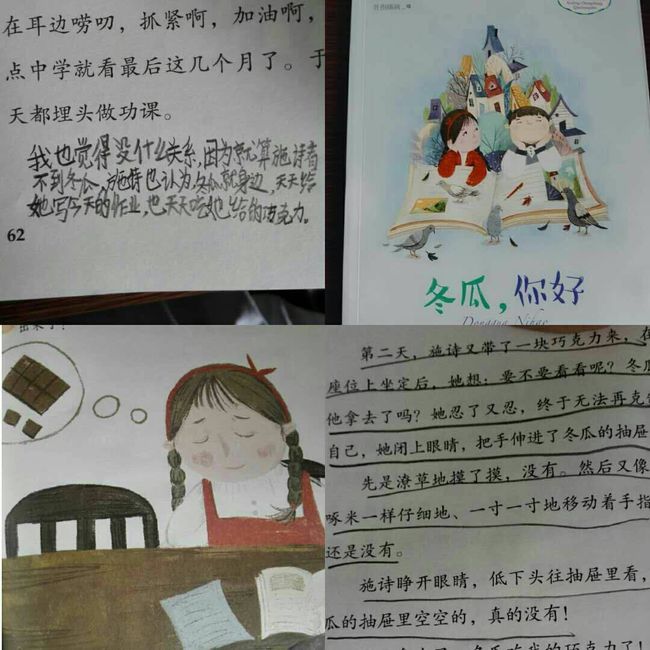 在耳边唠叨，抓紧啊，加油啊，
点中学就看最后这几个月了。于
天都埋头做功课。
我也觉得没什么关系，因为就算施诗看
不到冬瓜，施诗也认为冬瓜就身边，天天给
她写今天的作业，也天天吃她给的巧克力。
62
冬瓜，你好
Donggua Nihao
第二天，施诗又带了一块巧克力来，在
座位上坐定后，她想：要不要看看呢？冬瓜
他拿去了吗？她忍了又忍，终于无法再克制
自己，她闭上眼睛，把手伸进了冬瓜的抽屉
先是潦草地摸了摸，没有。然后又像
啄米一样仔细地、一寸一寸地移动着手指
还是没有。
施诗睁开眼睛，低下头往抽屉里看，
瓜的抽屉里空空的，真的没有！